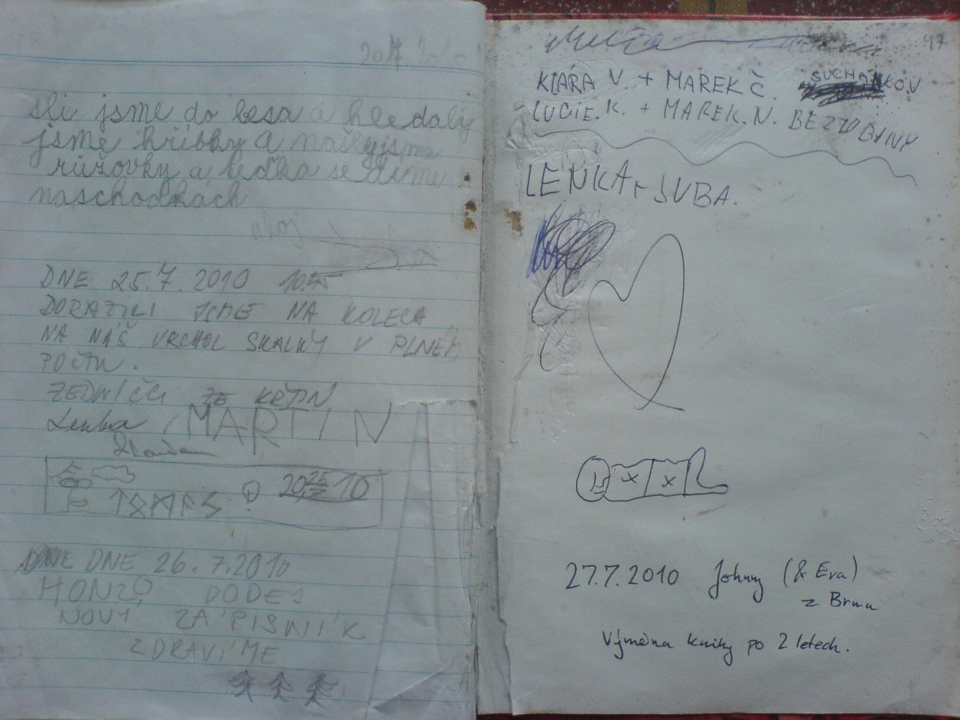 šli jsme do lesa a hledaly
jsme hřibky a našly jsme
růžovky a teďka se díme
naschodkách
DNE 25.7. 2010 1045
DORAZILI JSME NA KOLECH
NA NÁŠ VRCHOL SKALKY V PLNÉM
POČTU.
ZEDNÍČCI ZE KŘTIN
Lenka MARTIN
TOMAS 2025 10
DNE 26.7.2010
HONZO DODEJ
NOVÝ ZÁPISNÍK
ZDRAVÍME
47
KLÁRA V. + MAREK Č. SUCHÁNKOV
LUCIE.K. + MAREK.N. BEZDOBINY
LENKA + SUBA.
27.7.2010 Johny (& Eva)
z Brna
Výměna knihy po 2 letech.